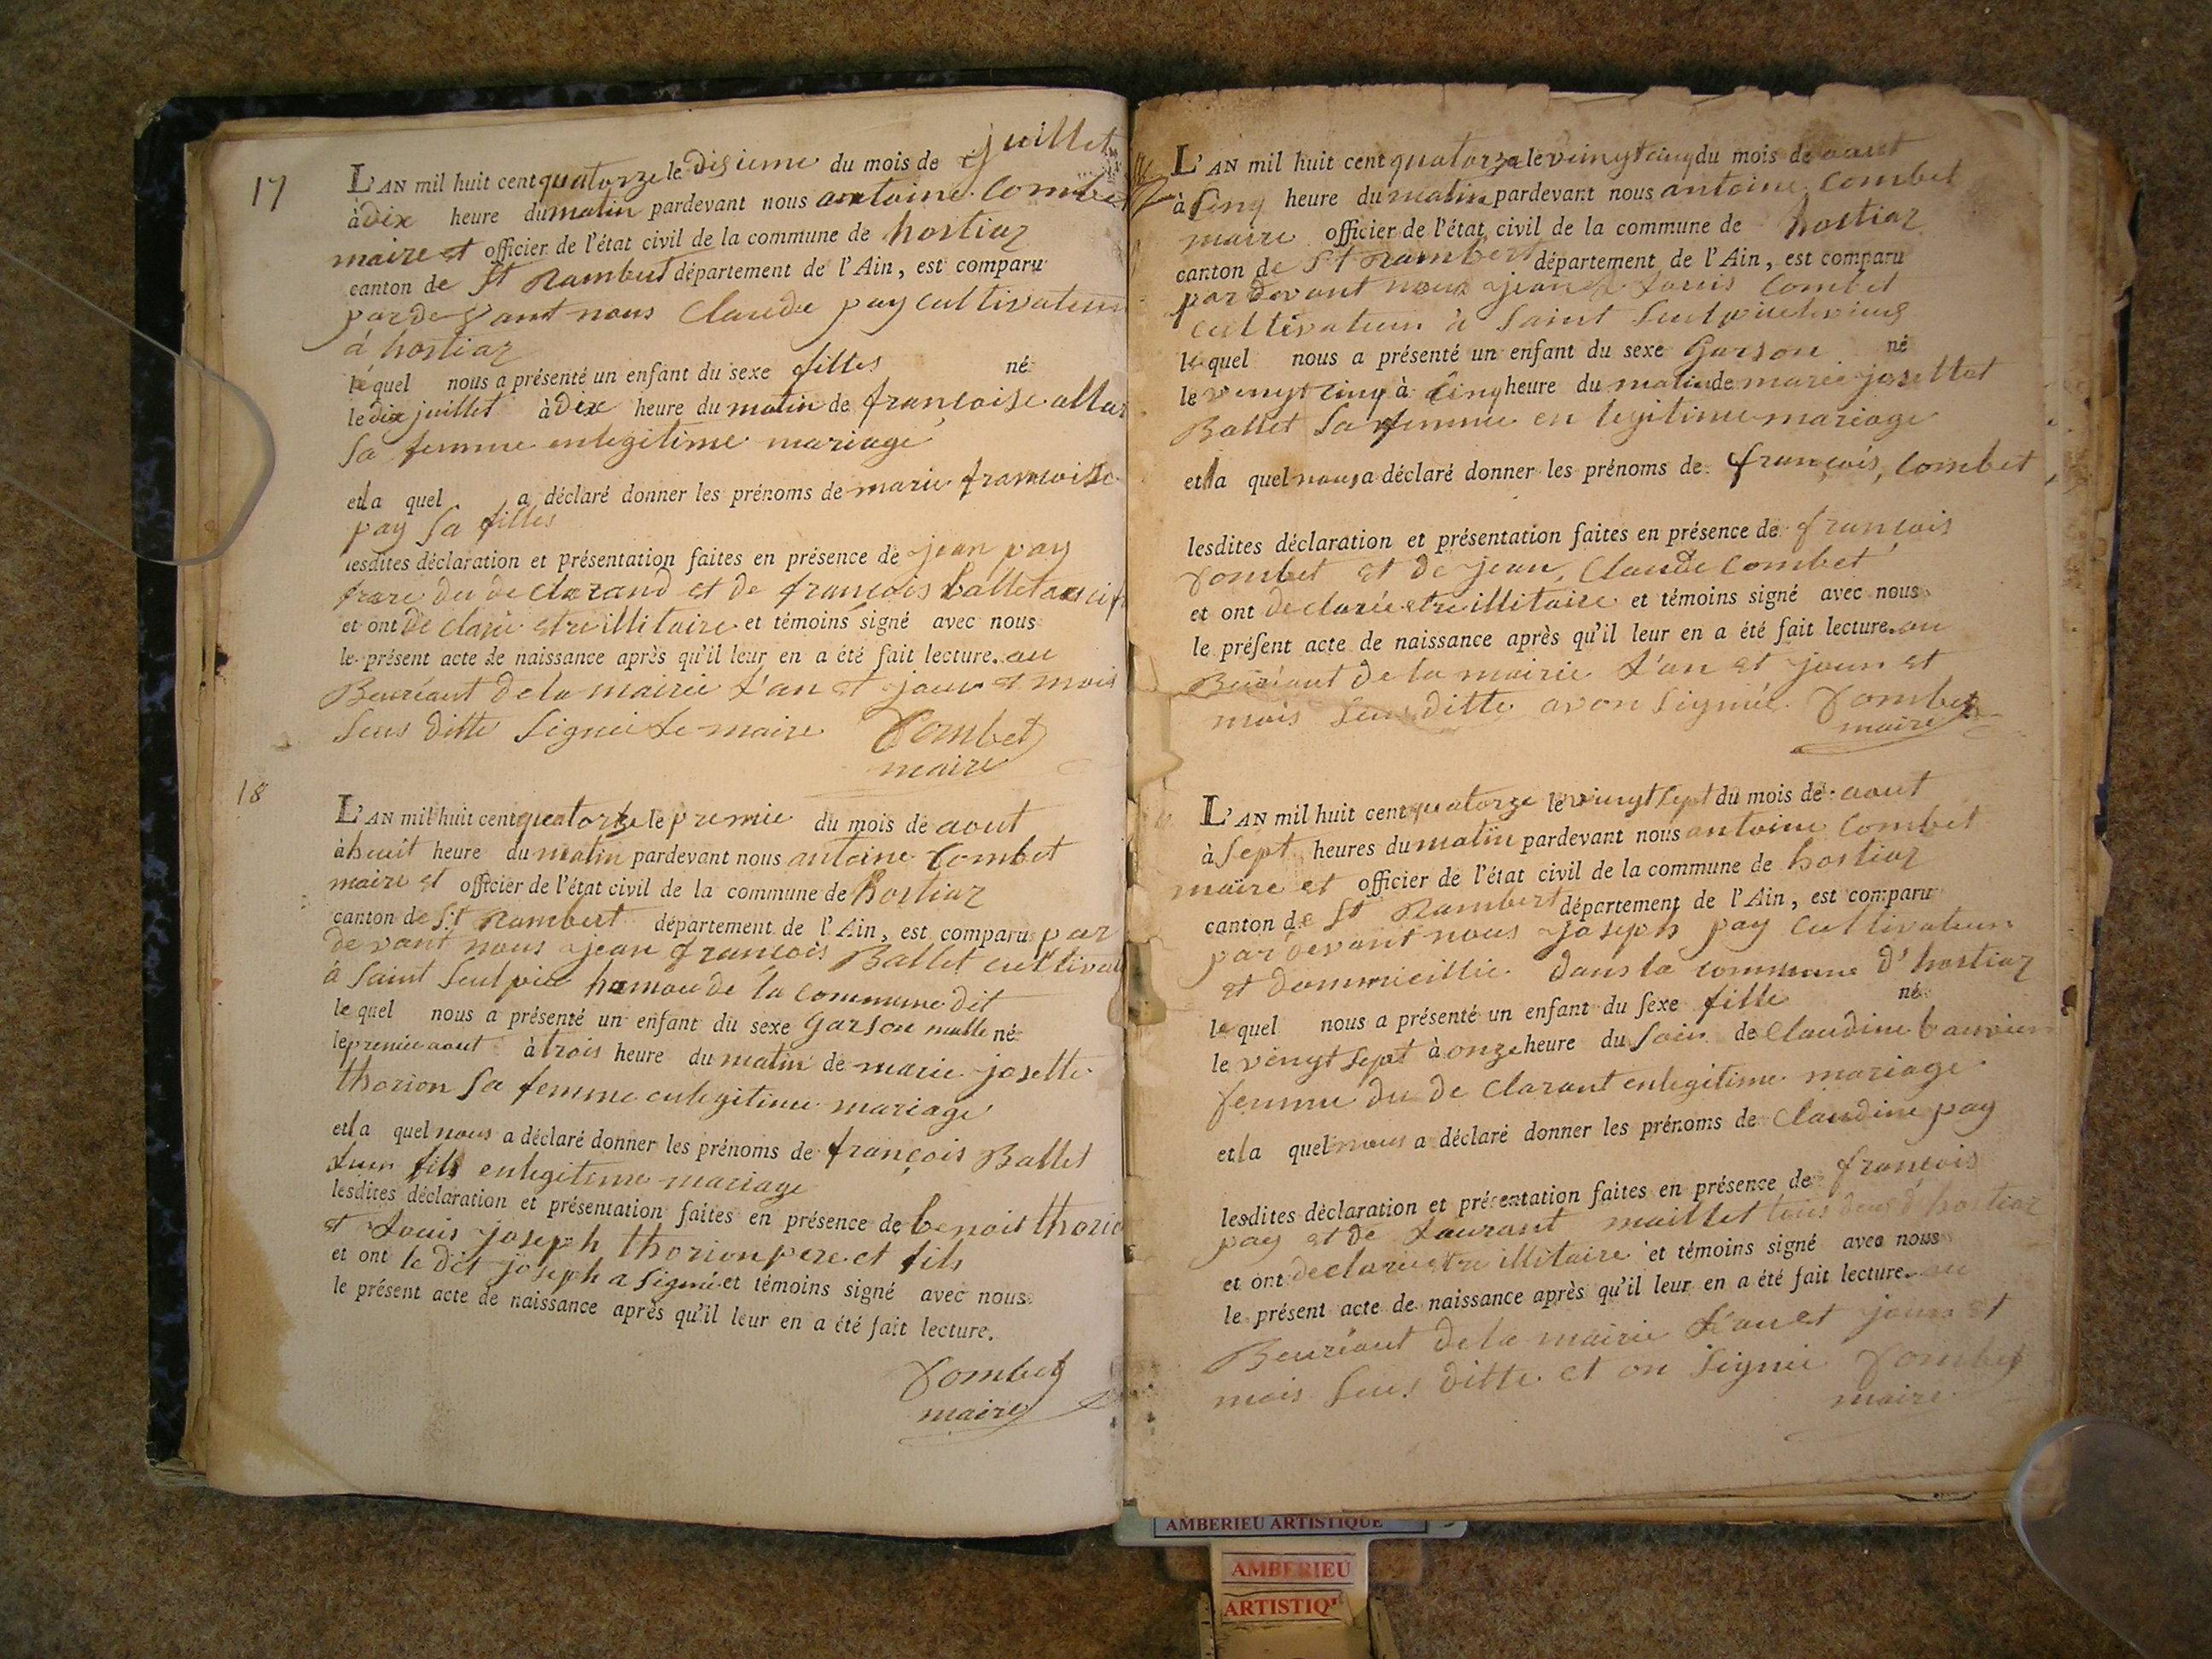 17
L'AN mil huit cent quatorze le disieme du mois de juillet
à dix heure du matin pardevant nous antoine Combet
maire et officier de l'état civil de la commune de hostiaz
canton de St Rambert département de l'Ain, est comparu
par devant nous Claude pay cultivateur
á hostiaz
le quel nous a présenté un enfant du sexe filles né
le dix juillet à dix heure du matin de francoise
Sa femme enlegitime mariage
et la quel a déclaré donner les prénoms de marie francoise
pay Sa filles
lesdites déclaration et présentation faites en présence de jean pay
frare du de clarand et de francois ballet
et ont de clarie etre illitaire et témoins signé avec nous
le présent acte de naissance après qu'il leur en a été fait lecture. au
Beureaut de la mairie L'an et jour et mois
Seus ditte Signie Le maire Combet
maire
18
L'AN mil huit cent quatorze le premie du mois de aout
à heuit heure du matin pardevant nous antoine Combet
maire et officier de l'état civil de la commune de hostiaz
canton de St Rambert département de l'Ain, est comparu par
devant nous jean francois Ballet
á Saint Seulpie hamau de la Commune dit
le quel nous a présenté un enfant du sexe Garson malle né
le premie aout à trois heure du matin de marie josette
thorion Sa femme enlegitime mariage
et la quel nous a déclaré donner les prénoms de françois Ballet
Leur fils enlegitime mariage
lesdites déclaration et présentation faites en présence de benoit
et Louis joseph thorion pere et fils
et ont le dit joseph a Signé et témoins signé avec nous
le présent acte de naissance après qu'il leur en a été fait lecture.
Combet
maire
L'AN mil huit cent quatorze le veingt cinq du mois de aout
à Cinq heure du matin pardevant nous antoine Combet
maire officier de l'état civil de la commune de hostiaz
canton de St Rambert département de l'Ain, est comparu
par devant nous jean Louis Combet
cultivateur à Saint
le quel nous a présenté un enfant du sexe Garson né
le vengt cinq à Cinq heure du matin de marie
Ballet Sa femme en legitime mariage
et la quel nous a déclaré donner les prénoms de françois, Combet
lesdites déclaration et présentation faites en présence de françois
Combet et de jean, Claude Combet
et ont declarée etre illitaire et témoins signé avec nous
le présent acte de naissance après qu'il leur en a été fait lecture. au
Beureaut de la mairie L'an et jour et
mois Seus ditte avon Signié Combet
maire
L'AN mil huit cent quatorze le vingt Sept du mois de aout
à Sept heures du matin pardevant nous antoine Combet
maire et officier de l'état civil de la commune de hostiaz
canton de St Rambert département de l'Ain, est comparu
par devant nous joseph pay cultivateur
et dommicillie dans la commune d'hostiaz
le quel nous a présenté un enfant du sexe fille né
le vingt Sept à onze heure du Soir de Claudine
femme du de clarant enlegitime mariage
et la quel nous a déclaré donner les prénoms de Claudine pay
lesdites déclaration et présentation faites en présence de françois
pay et de Laurant maillet tous deus d'hostiaz
et ont declarie etre illitaire et témoins signé avec nous
le présent acte de naissance après qu'il leur en a été fait lecture. au
Beureaut de la mairie L'an et jour et
mois Seus ditte et on Signie Combet
maire
AMBERIEU ARTISTIQUE
AMBERIEU
ARTISTIQ